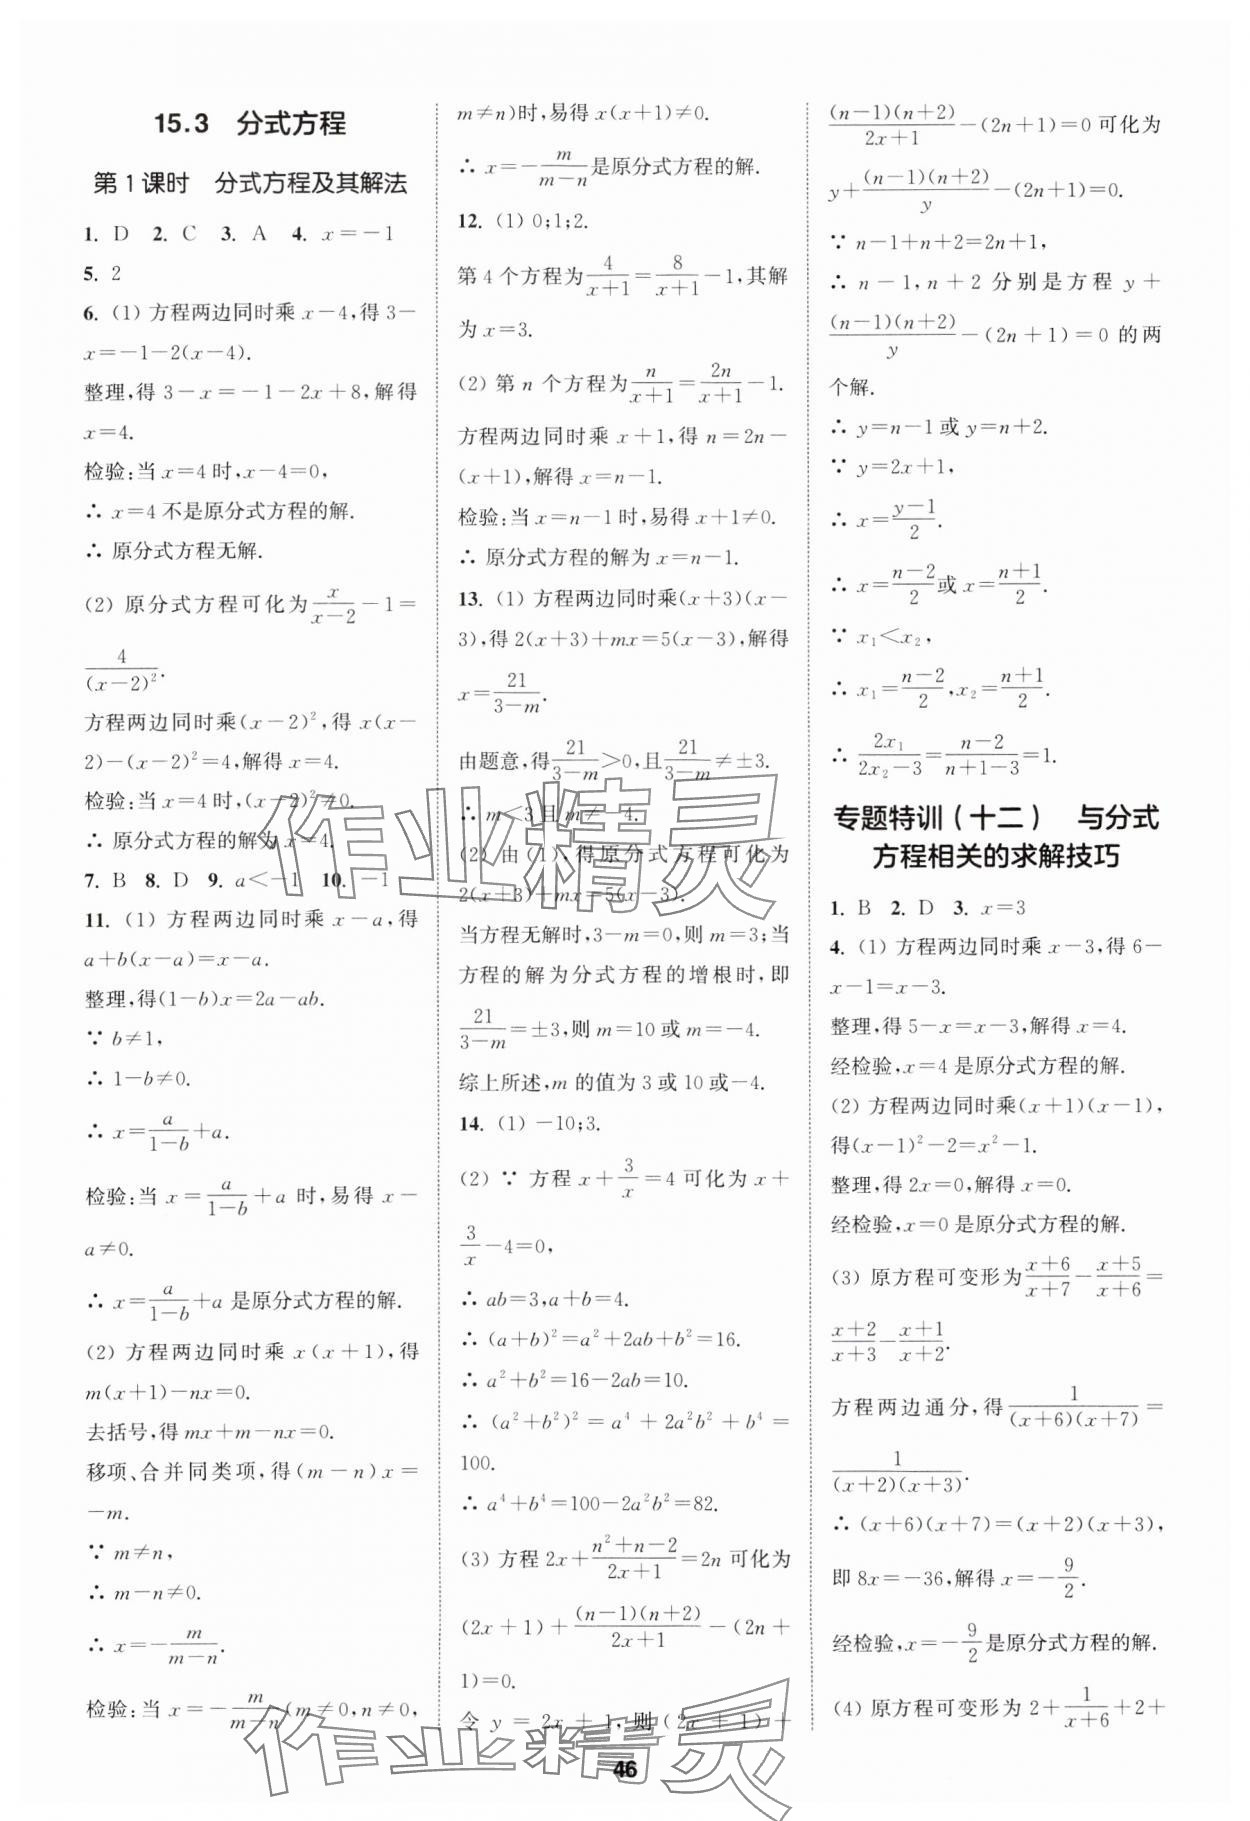 15.3 分式方程
第1课时 分式方程及其解法
1. D 2. C 3. A 4. x=-1
5. 2
6. (1) 方程两边同时乘 x-4,得 3-
x=-1-2(x-4).
整理,得 3-x=-1-2x+8,解得
x=4.
检验:当 x=4 时,x-4=0,
∴ x=4 不是原分式方程的解.
∴ 原分式方程无解.
(2) 原分式方程可化为 x/(x-2) -1=
4/(x-2)².
方程两边同时乘(x-2)²,得 x(x-
2)-(x-2)²=4,解得 x=4.
检验:当 x=4 时,(x-2)²≠0.
∴ 原分式方程的解为 x=4.
7. B 8. D 9. a<-1 10. -1
11. (1) 方程两边同时乘 x-a,得
a+b(x-a)=x-a.
整理,得(1-b)x=2a-ab.
∵ b≠1,
∴ 1-b≠0.
∴ x=a/(1-b)+a.
检验:当 x=a/(1-b)+a 时,易得 x-
a≠0.
∴ x=a/(1-b)+a 是原分式方程的解.
(2) 方程两边同时乘 x(x+1),得
m(x+1)-nx=0.
去括号,得 mx+m-nx=0.
移项、合并同类项,得(m-n)x=
-m.
∵ m≠n,
∴ m-n≠0.
∴ x=-m/(m-n).
检验:当 x=-m/(m-n)(m≠0,n≠0,
m≠n)时,易得 x(x+1)≠0.
∴ x=-m/(m-n)是原分式方程的解.
12. (1) 0;1;2.
第 4 个方程为4/(x+1)=8/(x+1)-1,其解
为 x=3.
(2) 第 n 个方程为n/(x+1)=2n/(x+1)-1.
方程两边同时乘 x+1,得 n=2n-
(x+1),解得 x=n-1.
检验:当 x=n-1 时,易得 x+1≠0.
∴ 原分式方程的解为 x=n-1.
13. (1) 方程两边同时乘(x+3)(x-
3),得 2(x+3)+mx=5(x-3),解得
x=21/(3-m).
由题意,得21/(3-m)>0,且21/(3-m)≠±3.
∴ m<3 且 m≠-4.
(2) 由(1),得原分式方程可化为
2(x+3)+mx=5(x-3).
当方程无解时,3-m=0,则 m=3;当
方程的解为分式方程的增根时,即
21/(3-m)=±3,则 m=10 或 m=-4.
综上所述,m 的值为 3 或 10 或-4.
14. (1) -10;3.
(2) ∵ 方程 x+3/x=4 可化为 x+
3/x-4=0,
∴ ab=3,a+b=4.
∴ (a+b)²=a²+2ab+b²=16.
∴ a²+b²=16-2ab=10.
∴ (a²+b²)²=a⁴+2a²b²+b⁴=
100.
∴ a⁴+b⁴=100-2a²b²=82.
(3) 方程 2x+(n²+n-2)/(2x+1)=2n 可化为
(2x+1)+(n-1)(n+2)/(2x+1)-(2n+
1)=0.
令 y=2x+1,则(2x+1)+
(n-1)(n+2)/(2x+1)-(2n+1)=0 可化为
y+(n-1)(n+2)/y-(2n+1)=0.
∵ n-1+n+2=2n+1,
∴ n-1,n+2 分别是方程 y+
(n-1)(n+2)/y-(2n+1)=0 的两
个解.
∴ y=n-1 或 y=n+2.
∵ y=2x+1,
∴ x=(y-1)/2.
∴ x=(n-2)/2或 x=(n+1)/2.
∵ x₁<x₂,
∴ x₁=(n-2)/2,x₂=(n+1)/2.
∴ 2x₁/(2x₂-3)=(n-2)/(n+1-3)=1.
专题特训(十二) 与分式
方程相关的求解技巧
1. B 2. D 3. x=3
4. (1) 方程两边同时乘 x-3,得 6-
x-1=x-3.
整理,得 5-x=x-3,解得 x=4.
经检验,x=4 是原分式方程的解.
(2) 方程两边同时乘(x+1)(x-1),
得(x-1)²-2=x²-1.
整理,得 2x=0,解得 x=0.
经检验,x=0 是原分式方程的解.
(3) 原方程可变形为(x+6)/(x+7)-(x+5)/(x+6)=
(x+2)/(x+3)-(x+1)/(x+2).
方程两边通分,得1/((x+6)(x+7))=
1/((x+2)(x+3)).
∴ (x+6)(x+7)=(x+2)(x+3),
即 8x=-36,解得 x=-9/2.
经检验,x=-9/2是原分式方程的解.
(4) 原方程可变形为 2+1/(x+6)+2+
46
作业精灵
作业精灵